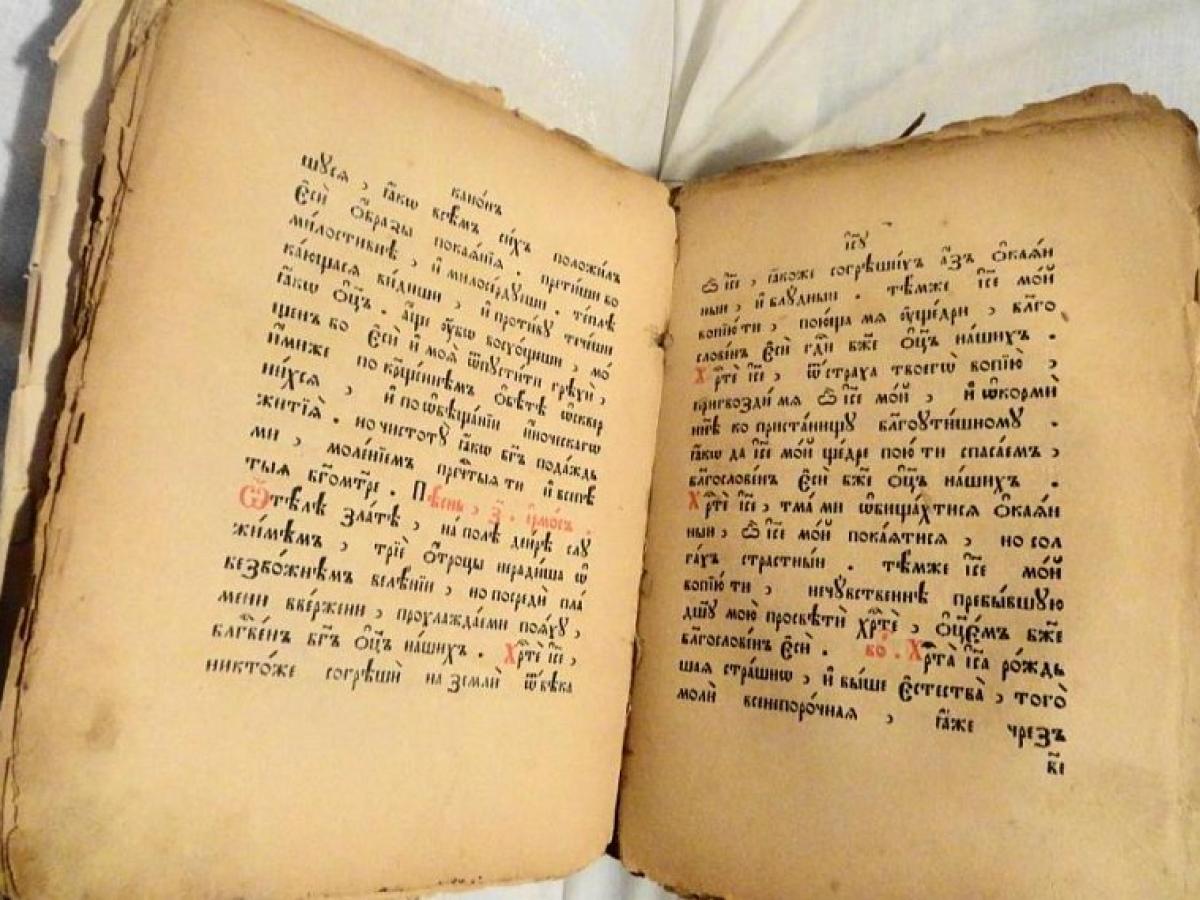 канѡ́нъ
шуся , ꙗ҆́кѡ всѣ́мъ си́хъ положи́лъ
є҆сѝ ѻ҆́бразы покаѧ́нїѧ . прети́ши бо
ми́лостивнѣ , и҆ милосе́рдуѧши . те́плѣ
ка́ющаѧся ви́диши , и҆ проти́ву тече́ши
ꙗ҆́кѡ ѻ҆ц҃ъ . а҆́ще ᲂу҆́бѡ восхо́щеши , мо́
щенъ бо є҆сѝ и҆ моѧ̀ ѿпусти́ти грѣхѝ ,
и҆́миже по кр҃ще́ннѣмъ ѻ҆бѣ́тѣ ѡ҆сквер
ни́хся , и҆ по ѡ҆бѣща́нїи и҆́ноческагѡ
житїѧ̀ . но чистотꙋ̀ ꙗ҆́кѡ бг҃ъ пода́ждь
ми , моле́нїемъ пречⷭ҇тыѧ ти и҆ всепѣ
тыѧ бг҃ома́тре . Пѣ́снь , з҃ . і҆рмо́съ .
Ѿ тѣ́лѣ зла́тѣ , на́ полѣ деи́рѣ слꙋ
жи́мѣмъ , трїѐ ѻ҆́троцы неради́ша ѡ҆
безбо́жнѣмъ велѣ́нїи , но посредѝ пла́
мени вве́ржени , прохлажда́еми поѧ́хꙋ ,
блгⷭ҇ве́нъ бг҃ъ ѻ҆ц҃ъ на́шихъ . Хрⷭ҇тѐ і҆с҃е ,
никто́же согрѣшѝ на землѝ ѿ вѣ́ка
і҆с҃ꙋ
Ѽ і҆с҃е , ꙗ҆́коже согрѣши́хъ а҆́зъ ѻ҆каѧ́н
ныи , и҆ блꙋ́дныи . тѣ́мже і҆с҃е мо́й
вопїю́ ти , пою́ща мѧ ᲂу҆ще́дри , бл҃го
слове́нъ є҆сѝ гдⷭ҇и бж҃е ѻ҆ц҃ъ на́шихъ .
Хрⷭ҇тѐ і҆с҃е , ѿ стра́ха твоегѡ̀ вопїю̀ ,
пригвозди́ мѧ ѽ і҆с҃е мо́й , и҆ ѡ҆корми́
нн҃ѣ ко приста́нищꙋ бл҃гоꙋти́шномꙋ .
ꙗ҆́кѡ да і҆с҃е мо́й ще́дре пою́ ти спаса́емъ ,
бл҃гослове́нъ є҆сѝ бж҃е ѻ҆ц҃ъ на́шихъ .
Хрⷭ҇тѐ і҆с҃е , тма́ ми ѡ҆бѣща́хтисѧ ѻ҆каѧ́н
ныи , ѽ і҆с҃е мо́й пока́ѧтисѧ , но сол
га́хъ стра́стныи . тѣ́мже і҆с҃е мо́й
вопїю́ ти , нечꙋ́вственнѣ пребы́вшꙋю
дш҃ꙋ мою̀ просвѣтѝ хрⷭ҇тѐ , ѻ҆ц҃є́мъ бж҃е
бл҃гослове́нъ є҆сѝ . бо́ . Хрⷭ҇та̀ і҆с҃а ро́ждь
шаѧ стра́шнѡ , и҆ вы́ше є҆стества̀ , того̀
молѝ всенепоро́чнаѧ , ꙗ҆́же чрезъ
бе